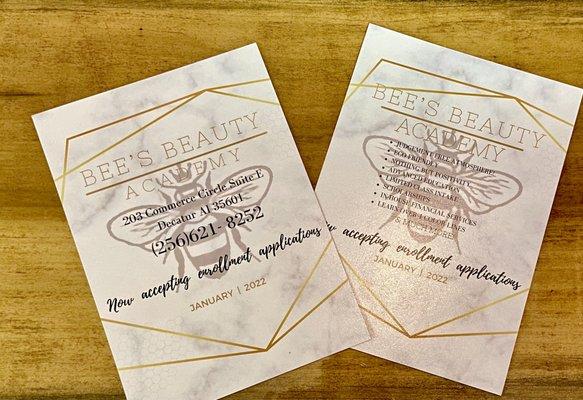 BEE'S BEAUTY
ACADEMY
203 Commerce Circle Suite E
Decatur Al 35601
(256)621- 8252
Now accepting enrollment applications
JANUARY | 2022
BEE'S BEAUTY
ACADEMY
• JUDGEMENT FREE ATMOSPHERE!
• ECO FRIENDLY
• NOTHING BUT POSITIVITY
• ADVANCED EDUCATION
• LIMITED CLASS INTAKE
• SCHOLARSHIPS
• IN-HOUSE FINANCIAL SERVICES
• LEARN OVER 4 COLOR LINES
& MUCH MORE
accepting enrollment applications
JANUARY | 2022